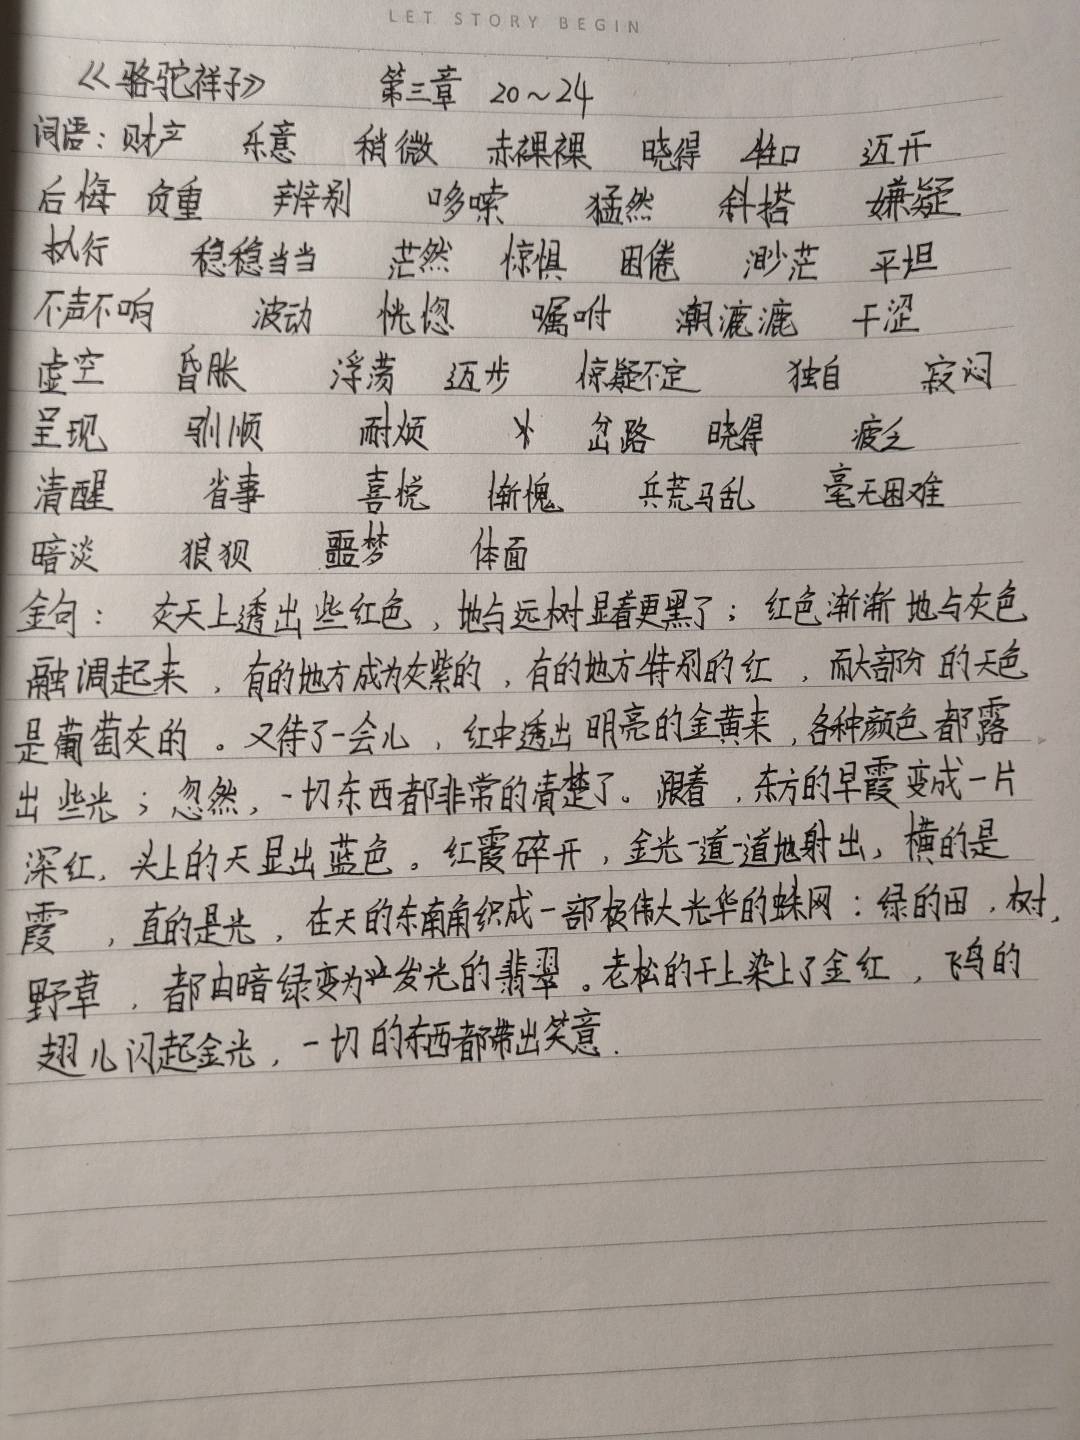 LET STORY BEGIN
《骆驼祥子》 第三章 20~24
词语：财产 乐意 稍微 赤裸裸 晓得 牲口 迈开
后悔 负重 辨别 哆嗦 猛然 斜搭 嫌疑
执行 稳稳当当 茫然 惊惧 困倦 渺茫 平坦
不声不响 波动 恍惚 嘱咐 潮漉漉 干涩
虚空 昏胀 浮荡 迈步 惊疑不定 独自 寂闷
呈现 驯顺 耐烦 岔路 晓得 疲乏
清醒 省事 喜悦 惭愧 兵荒马乱 毫无困难
暗淡 狼狈 噩梦 体面
金句： 灰天上透出些红色，地与远树显着更黑了；红色渐渐地与灰色
融调起来，有的地方成为灰紫的，有的地方特别的红，而大部分的天色
是葡萄灰的。又待了一会儿，红中透出明亮的金黄来，各种颜色都露
出些光；忽然，一切东西都非常的清楚了。跟着，东方的早霞变成一片
深红，头上的天显出蓝色。红霞碎开，金光一道一道地射出，横的是
霞，直的是光，在天的东南角织成一部极伟大光华的蛛网：绿的田，树，
野草，都由暗绿变为发光的翡翠。老松的干上染上了金红，飞鸟的
翅儿闪起金光，一切的东西都带出笑意.